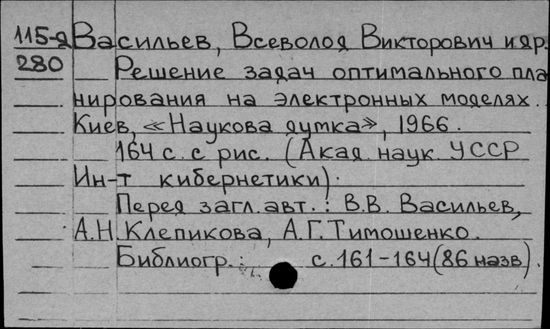 115-д Васильев, Всеволод Викторович и др.
280 Решение задач оптимального пла
нирования на электронных моделях.
Киев, «Наукова думка», 1966.
164 с. с рис. (Акад. наук УССР
Ин-т кибернетики).
Перед загл. авт.: В.В. Васильев,
А.Н. Клепикова, А.Г. Тимошенко.
Библиогр.: с. 161-164 (86 назв).